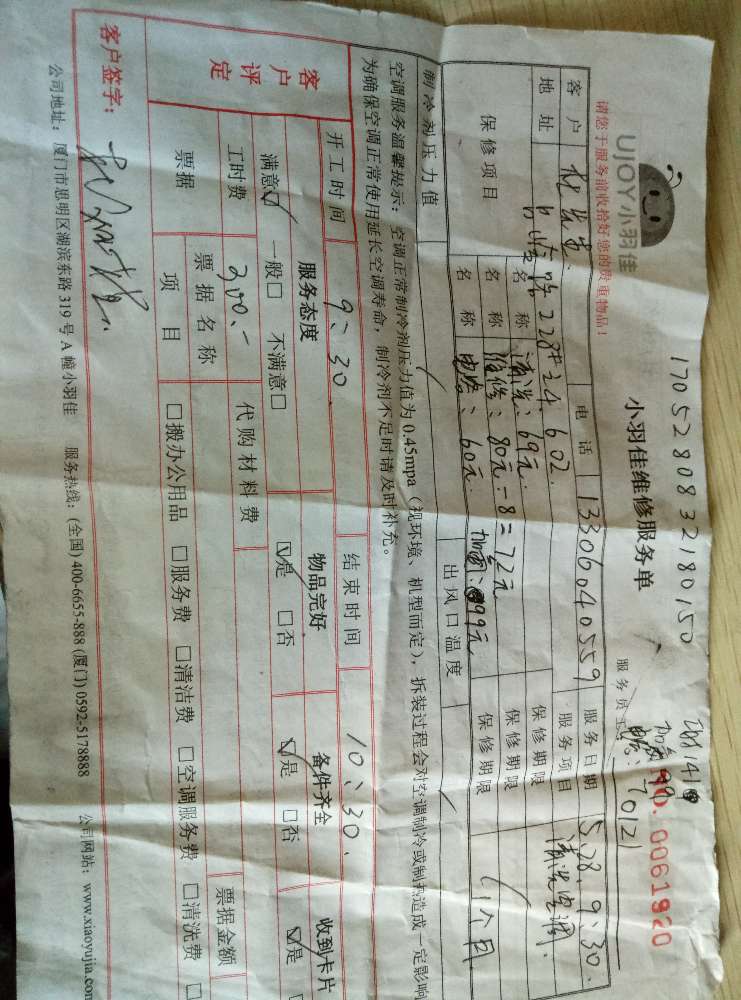 UJOY小羽佳
17052808 32180150
小羽佳维修服务单
请您于服务前收拾好您的贵重物品！
服务员工
70121
NO. 0061920
客户
电话
13306040559
服务日期
5.28. 9:30.
地址
228# 24. 602.
服务项目
清洗空调.
保修项目
名称
清洗：69元.
保修期限
1个月
名称
维修：80元-8=72元
保修期限
名称
电容：60元.
加氟：99元
保修期限
制冷剂压力值
出风口温度
空调服务温馨提示：空调正常制冷剂压力值为 0.45mpa（视环境、机型而定），拆装过程会对空调制冷或制热造成一定影响
为确保空调正常使用延长空调寿命，制冷剂不足时请及时补充。
开工时间
9：30.
结束时间
10：30.
客户评定
服务态度
物品完好
备件齐全
收到卡片
满意☑ 一般□ 不满意□
☑是 □否
☑是 □否
☑是
工时费
300.-
代购材料费
票据
票据名称
票据金额
项目
□搬办公用品 □服务费 □清洁费 □空调服务费 □清洗费
客户签字：
公司地址：厦门市思明区湖滨东路 319 号 A 幢小羽佳 服务热线：(全国) 400-6655-888 (厦门) 0592-5178888 公司网站：www.xiaoyujia.com